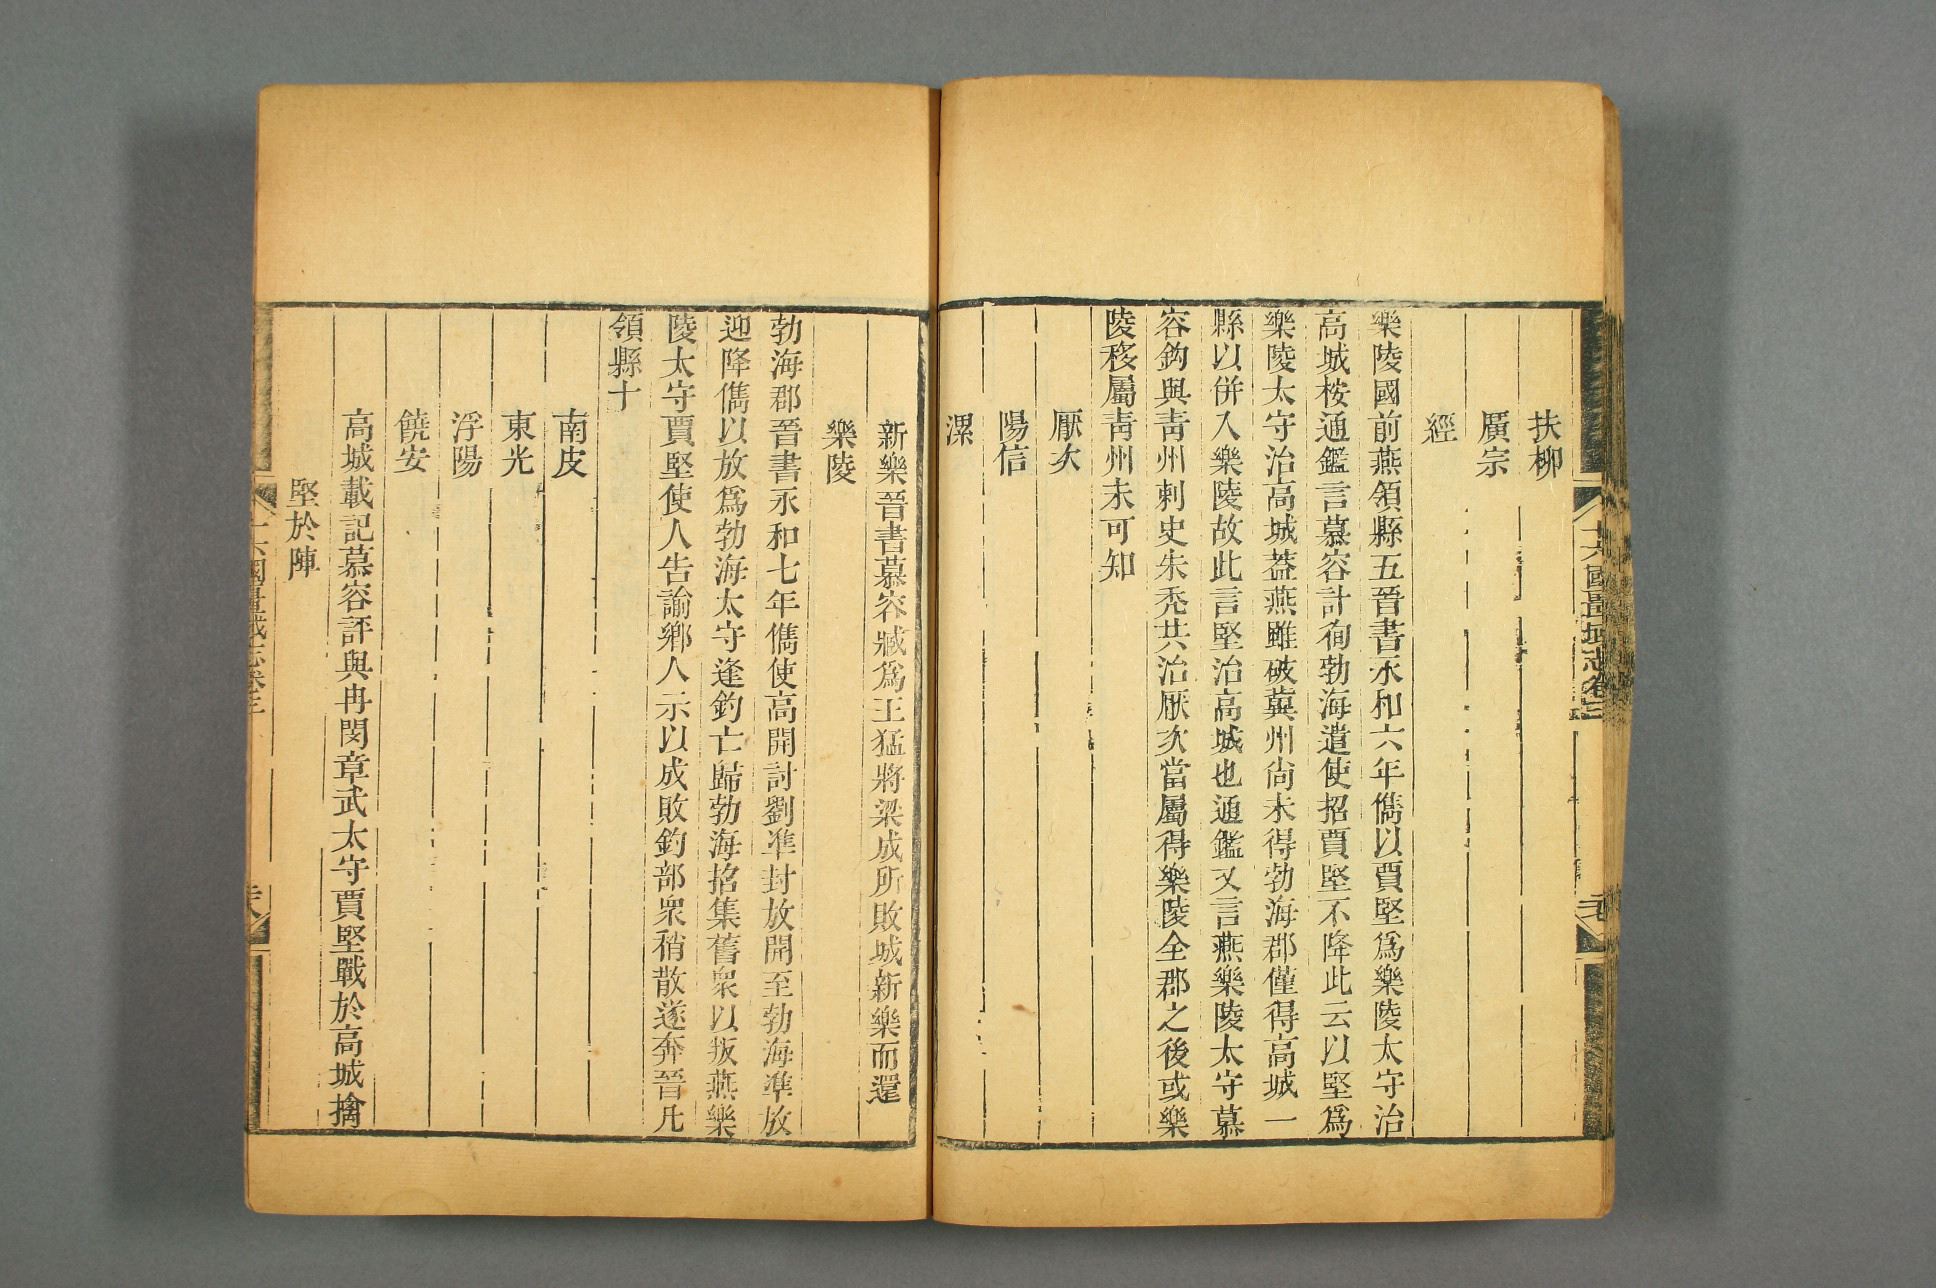 扶柳
廣宗
經
樂陵國前燕領縣五晉書永和六年儁以賈堅爲樂陵太守治
高城桉通鑑言慕容評徇勃海遣使招賈堅不降此云以堅爲
樂陵太守治高城葢燕雖破冀州尚未得勃海郡僅得高城一
縣以併入樂陵故此言堅治高城也通鑑又言燕樂陵太守慕
容鉤與青州刺史朱禿共治厭次當屬得樂陵全郡之後或樂
陵移屬青州未可知
厭次
陽信
漯
新樂晉書慕容臧爲王猛將梁成所敗城新樂而還
樂陵
勃海郡晉書永和七年儁使高開討劉準封放開至勃海準放
迎降儁以放爲勃海太守逄釣亡歸勃海招集舊衆以叛燕樂
陵太守賈堅使人告諭鄉人示以成敗釣部衆稍散遂奔晉凡
領縣十
南皮
東光
浮陽
饒安
高城載記慕容評與冉閔章武太守賈堅戰於高城擒
堅於陣
十六國疆域志卷三